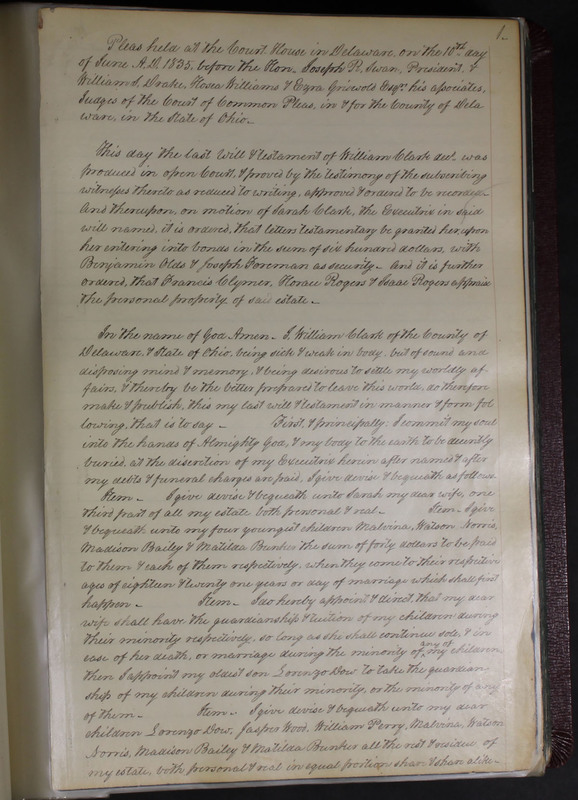 1.
Pleas held at the Court House in Delaware, on the 10th day
of June A.D. 1835, before the Hon. Joseph R. Swan, President, &
William S. Drake, Hosea Williams & Ezra Griswold Esqrs. his associates,
Judges of the Court of Common Pleas, in & for the County of Dela
ware, in the State of Ohio.
This day the last Will & testament of William Clark decd. was
produced in open Court, & proved by the testimony of the subscribing
witnesses thereto as reduced to writing, approved & ordered to be recorded.
And thereupon, on motion of Sarah Clark, the Executrix in said
will named, it is ordered, that letters testamentary be granted her, upon
her entering into bonds in the sum of six hundred dollars, with
Benjamin Olds & Joseph Foreman as security. And it is further
ordered, that Francis Clymer, Horace Rogers & Isaac Rogers appraise
the personal property of said estate.
In the name of God Amen. I, William Clark of the County of
Delaware, & State of Ohio, being sick & weak in body, but of sound and
disposing mind & memory, & being desirous to settle my worldly af
fairs, & thereby be the better prepared to leave this world, do therefore
make & publish, this my last will & testament in manner & form fol
lowing, that is to say - First, & principally: I commit my soul
into the hands of Almighty God, & my body to the earth to be decently
buried, at the discretion of my Executrix herein after named & after
my debts & funeral charges are paid, I give devise & bequeath as follows.
Item - I give devise & bequeath unto Sarah my dear wife, one
third part of all my estate both personal & real - Item - I give
& bequeath unto my four youngest children Malvina, Watson Norris,
Madison Baily & Matilda Bunker the sum of forty dollars to be paid
to them & each of them respectively, when they come to their respective
ages of eighteen & twenty one years or day of marriage which shall first
happen - Item - I do hereby appoint & direct, that my dear
wife shall have the guardianship & tuition of my children during
their minority respectively, so long as she shall continue sole, & in
case of her death, or marriage during the minority of any of my children,
then I appoint my oldest son Lorenzo Dow to take the guardian-
ship of my children during their minority, or the minority of any
of them - Item - I give devise & bequeath unto my dear
children Lorenzo Dow, Jasper Wood, William Perry, Malvina, Watson
Norris, Madison Baily & Matilda Bunker all the rest & residue of
my estate, both personal & real in equal portion share & share alike -